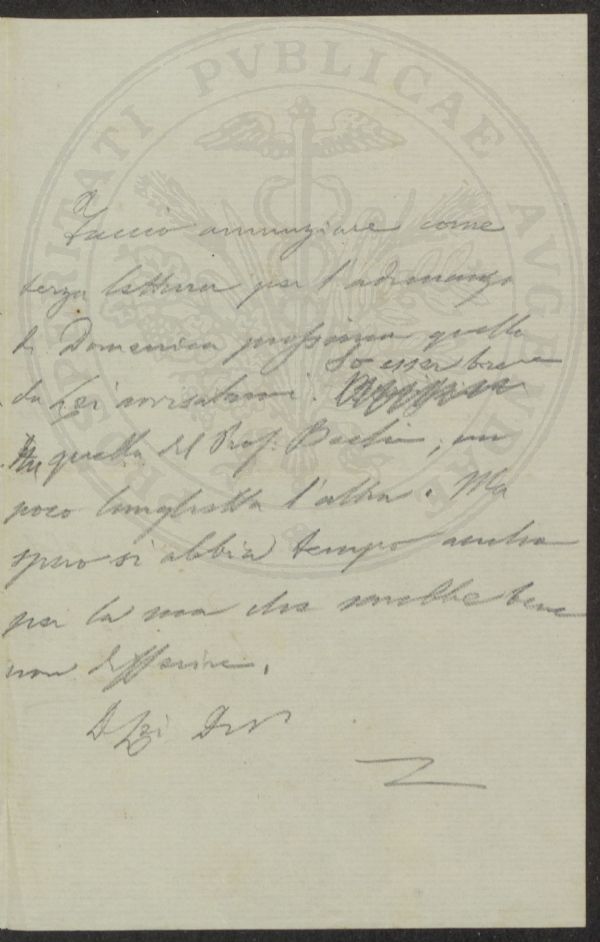 PROSPERITATI PVBLICAE AVGENDAE
Faccio annunziare come
terza lettura per l'adunanza
di Domenica prossima quella
da Lei avvisatami. So esser breve
quella del Prof. ; un
poco lunghetta l'altra. Ma
spero si abbia tempo anche
per la sua che sarebbe bene
non differire.
Di Lei Dev